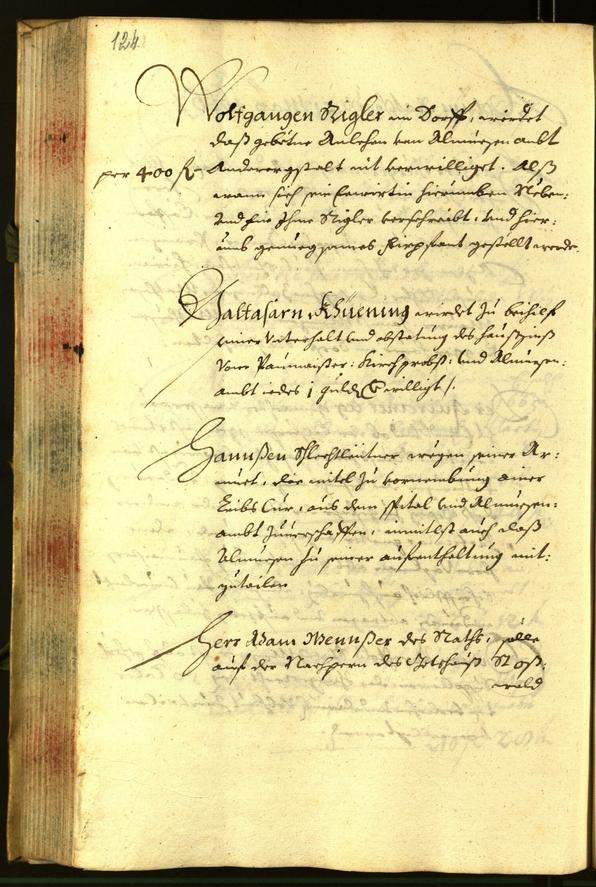 124
Wolfgangen Rigler im Dorff, würdet
daß gebetne Anlehen von Almuesen ambt
per 400 fl Anderergstalt nit verwilliget. Alß
wann sich sein Ewirtin hierumben Neben:
und für Ihme Rigler verschreibt, und hier:
umb genuegsames firpfant gestelt werde.
Baltasarn Khuening wirdet zu beihilf
seiner Unterhalt und abstatung des haußzinß
vom Paumaister: Kirchprobst: und Almuesen:
ambt iedes 1 gulden bewilligt /.
Hannßen Schlechtleutner wegen seiner Ar:
muet, die mitel zu vornembung einer
Leibs Cur, aus dem spital und Almuesen:
ambt zuverschaffen, inmitlst auch daß
Almuesen zu seiner aufenthaltung mit:
zutailen
Herr Adam Wennßer des Raths, solle
auf der Nachpern des Gotshauß St Oß:
wald